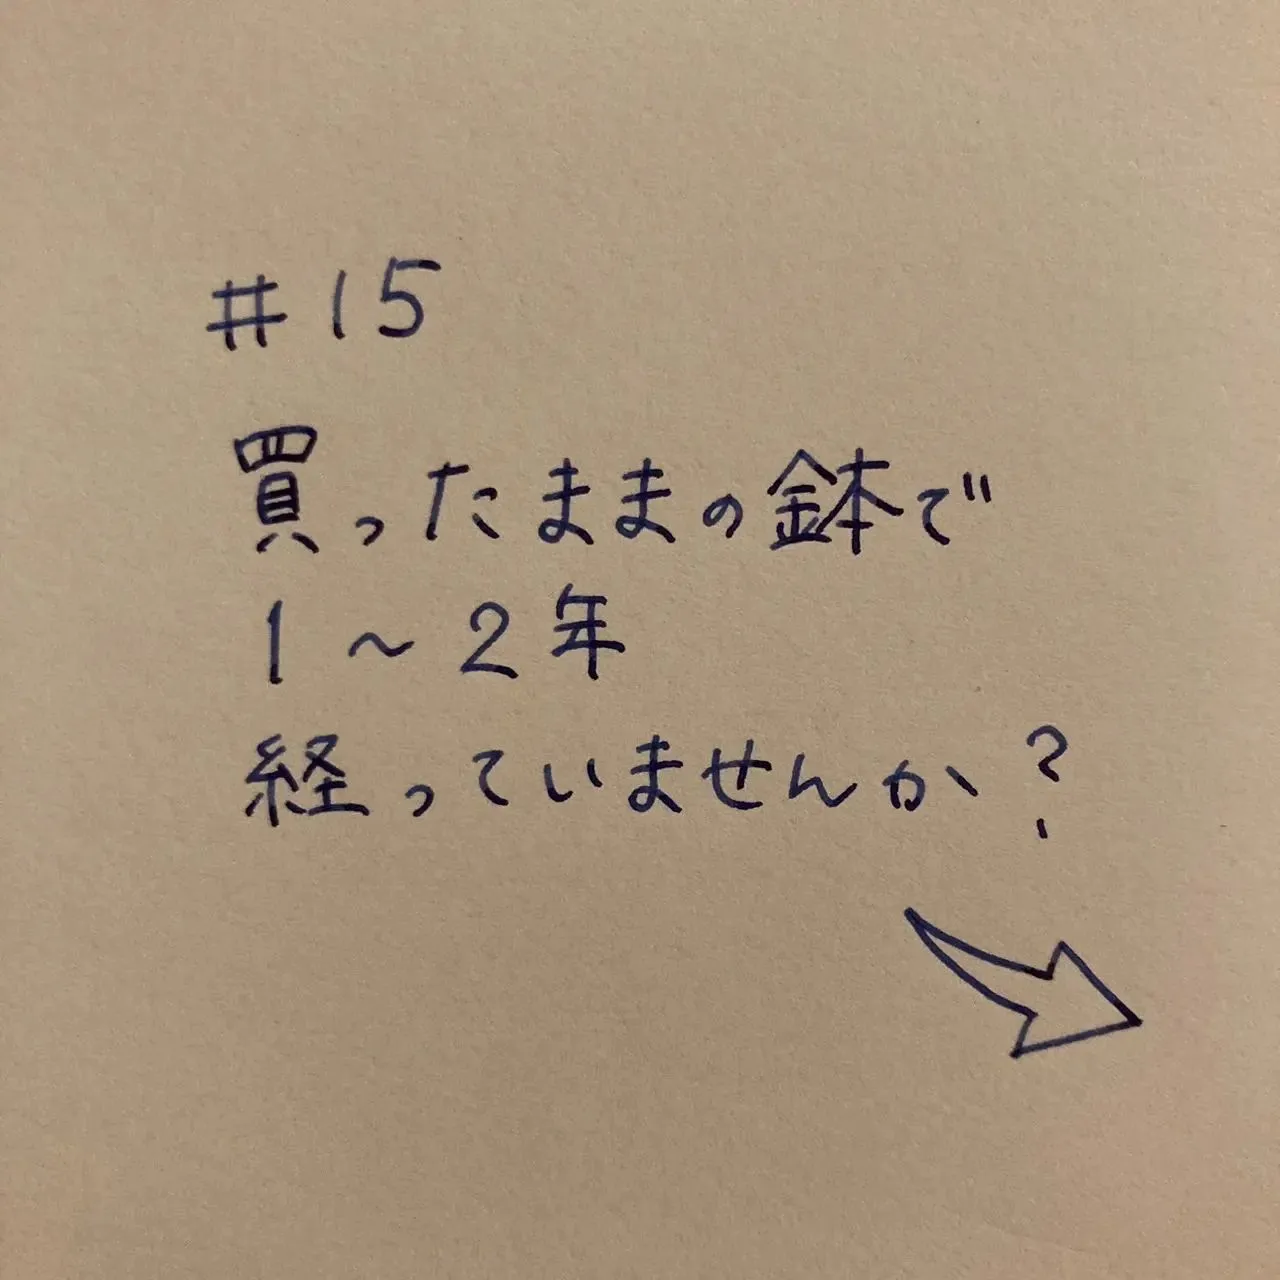 #15
買ったままの鉢で
1～2年
経っていませんか?